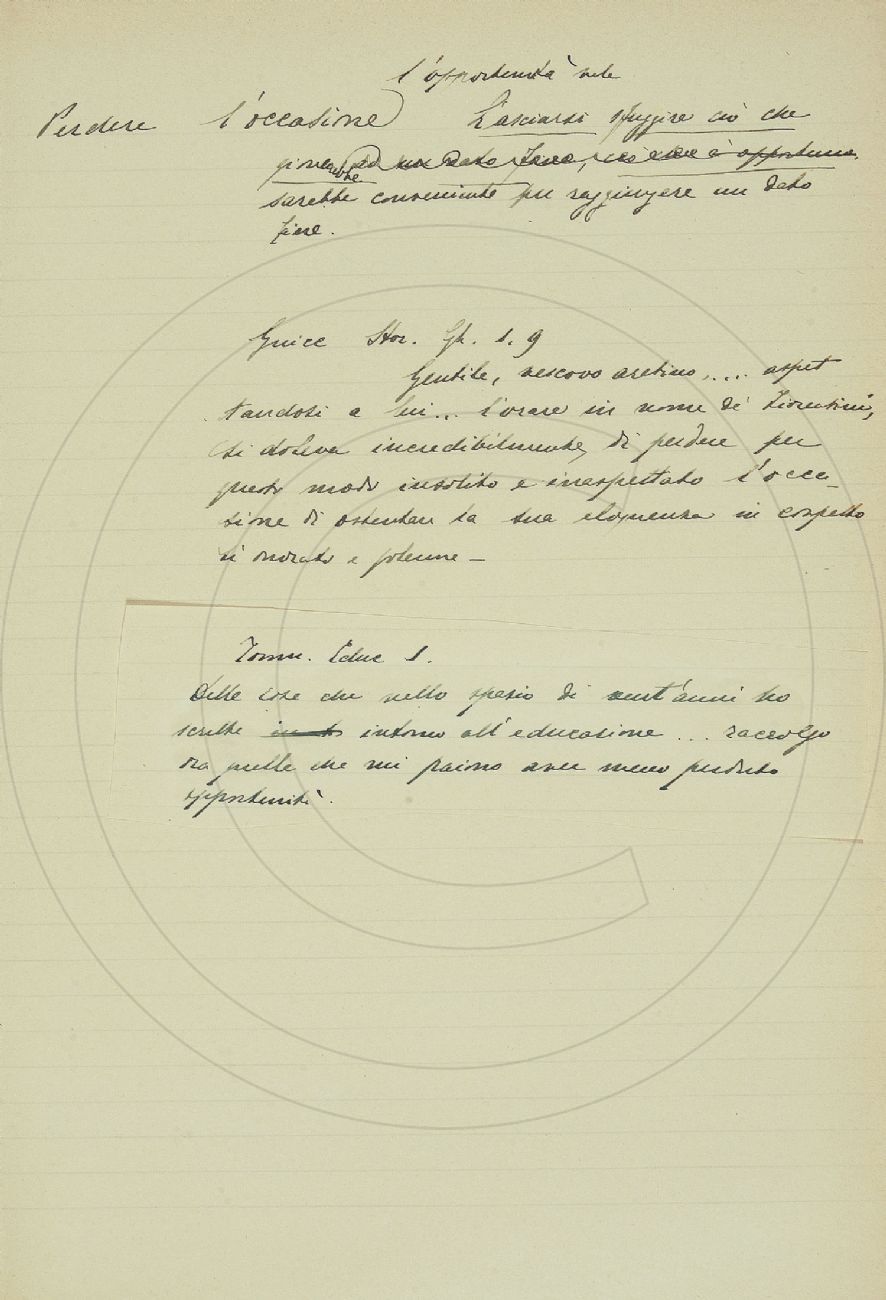 l'opportunità vale
Perdere l'occasione Lasciarsi sfuggire ciò che
giova ad un dato fine, ciò che è opportuno.
sarebbe conveniente per raggiungere un dato
fine.
Guicc Stor. 1. 9
Gentile, vescovo aretino, .... aspet
tandosi a lui... l'orare in nome de' Fiorentini,
si doleva incredibilmente, di perdere per
questo modo insolito e inaspettato l'occa-
sione di ostentare la sua eloquenza in cospetto
sì onorato e solenne -
Tomm. Educ 1.
Delle cose che nello spazio di vent'anni ho
scritte intorno all'educazione ... raccolgo
ora quelle che mi paiono aver meno perduto
opportunità.